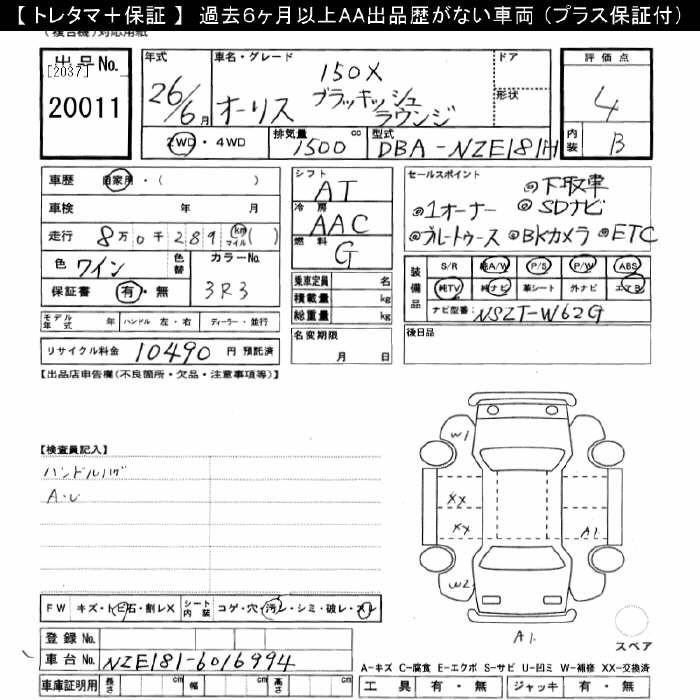 【 トレタマ＋保証 】 過去6ヶ月以上AA出品歴がない車両 (プラス保証付)
(複合機)対応用紙
出品No. [2037] 20011
年式 26/6月
車名・グレード 150X
オーリス ブラッキッシュ ラウンジ
ドア 形状
評価点 4
内装 B
2WD・4WD
排気量 1500 cc
型式 DBA-NZE181H
車歴 自家用・( )
車検 年 月
走行 8万0千289 km マイル ( )
色 ワイン 色替
カラーNo. 3R3
保証書 有・無
モデル年式 年 ハンドル 左・右 ディーラー・並行
リサイクル料金 10490 円 預託済
シフト AT
冷房 AAC
燃料 G
乗車定員 名
積載量 kg
総重量 kg
名変期限 月 日
セールスポイント ◎下取車
◎1オーナー ◎SDナビ
◎ブルートゥース ◎BKカメラ ◎ETC
装備品 S/R 純A/W P/S P/W ABS
純TV 純ナビ 革シート 外ナビ エアB
ナビ型番: NSZT-W62G
後日品
【出品店申告欄(不良箇所・欠品・注意事項等)】
【検査員記入】
A・U
W1
XX
XX
W2
A1
A1
スペア
FW キズ・トビ石・割レX シート内装 コゲ・穴・汚レ・シミ・破レ・スレ
登録No.
車台No. NZE181-6016994
車庫証明用 長さ cm 幅 cm 高さ cm
A-キズ C-腐食 E-エクボ S-サビ U-凹ミ W-補修 XX-交換済
工具 有・無 ジャッキ 有・無